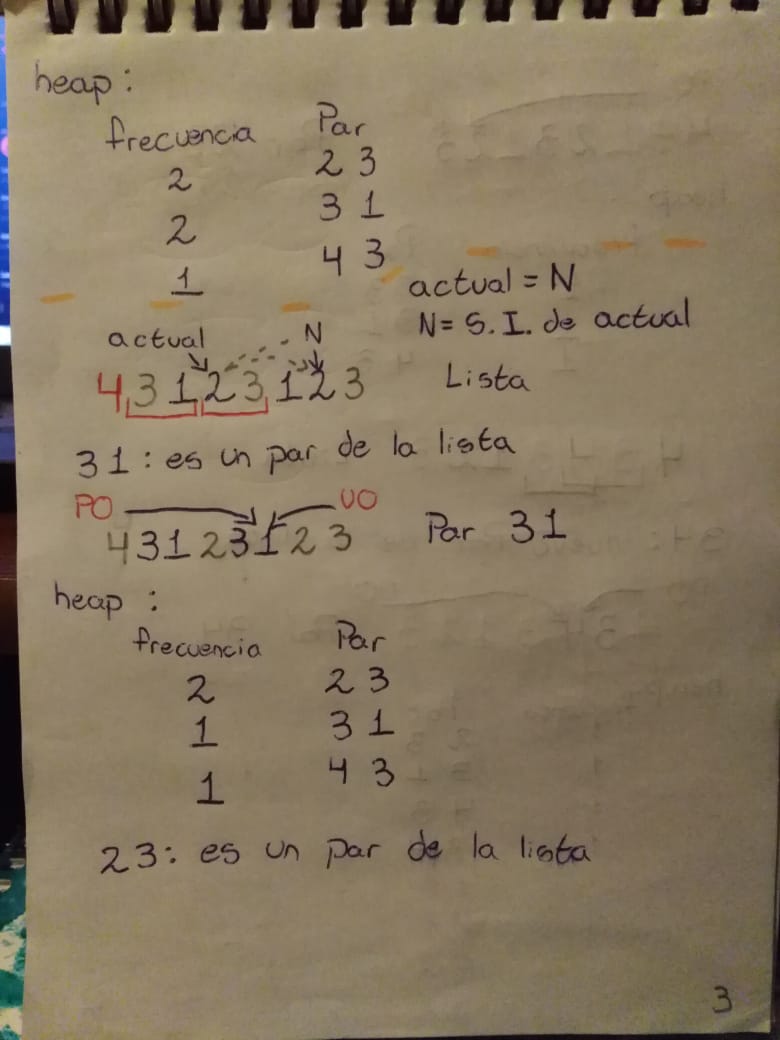 heap:
frecuencia Par
2 2 3
2 3 1
1 4 3
actual = N
N = S. I. de actual
actual N
4 3 1 2 3 1 2 3 Lista
31: es un par de la lista
PO UO
4 3 1 2 3 1 2 3 Par 31
heap :
frecuencia Par
2 2 3
1 3 1
1 4 3
23: es un par de la lista
3